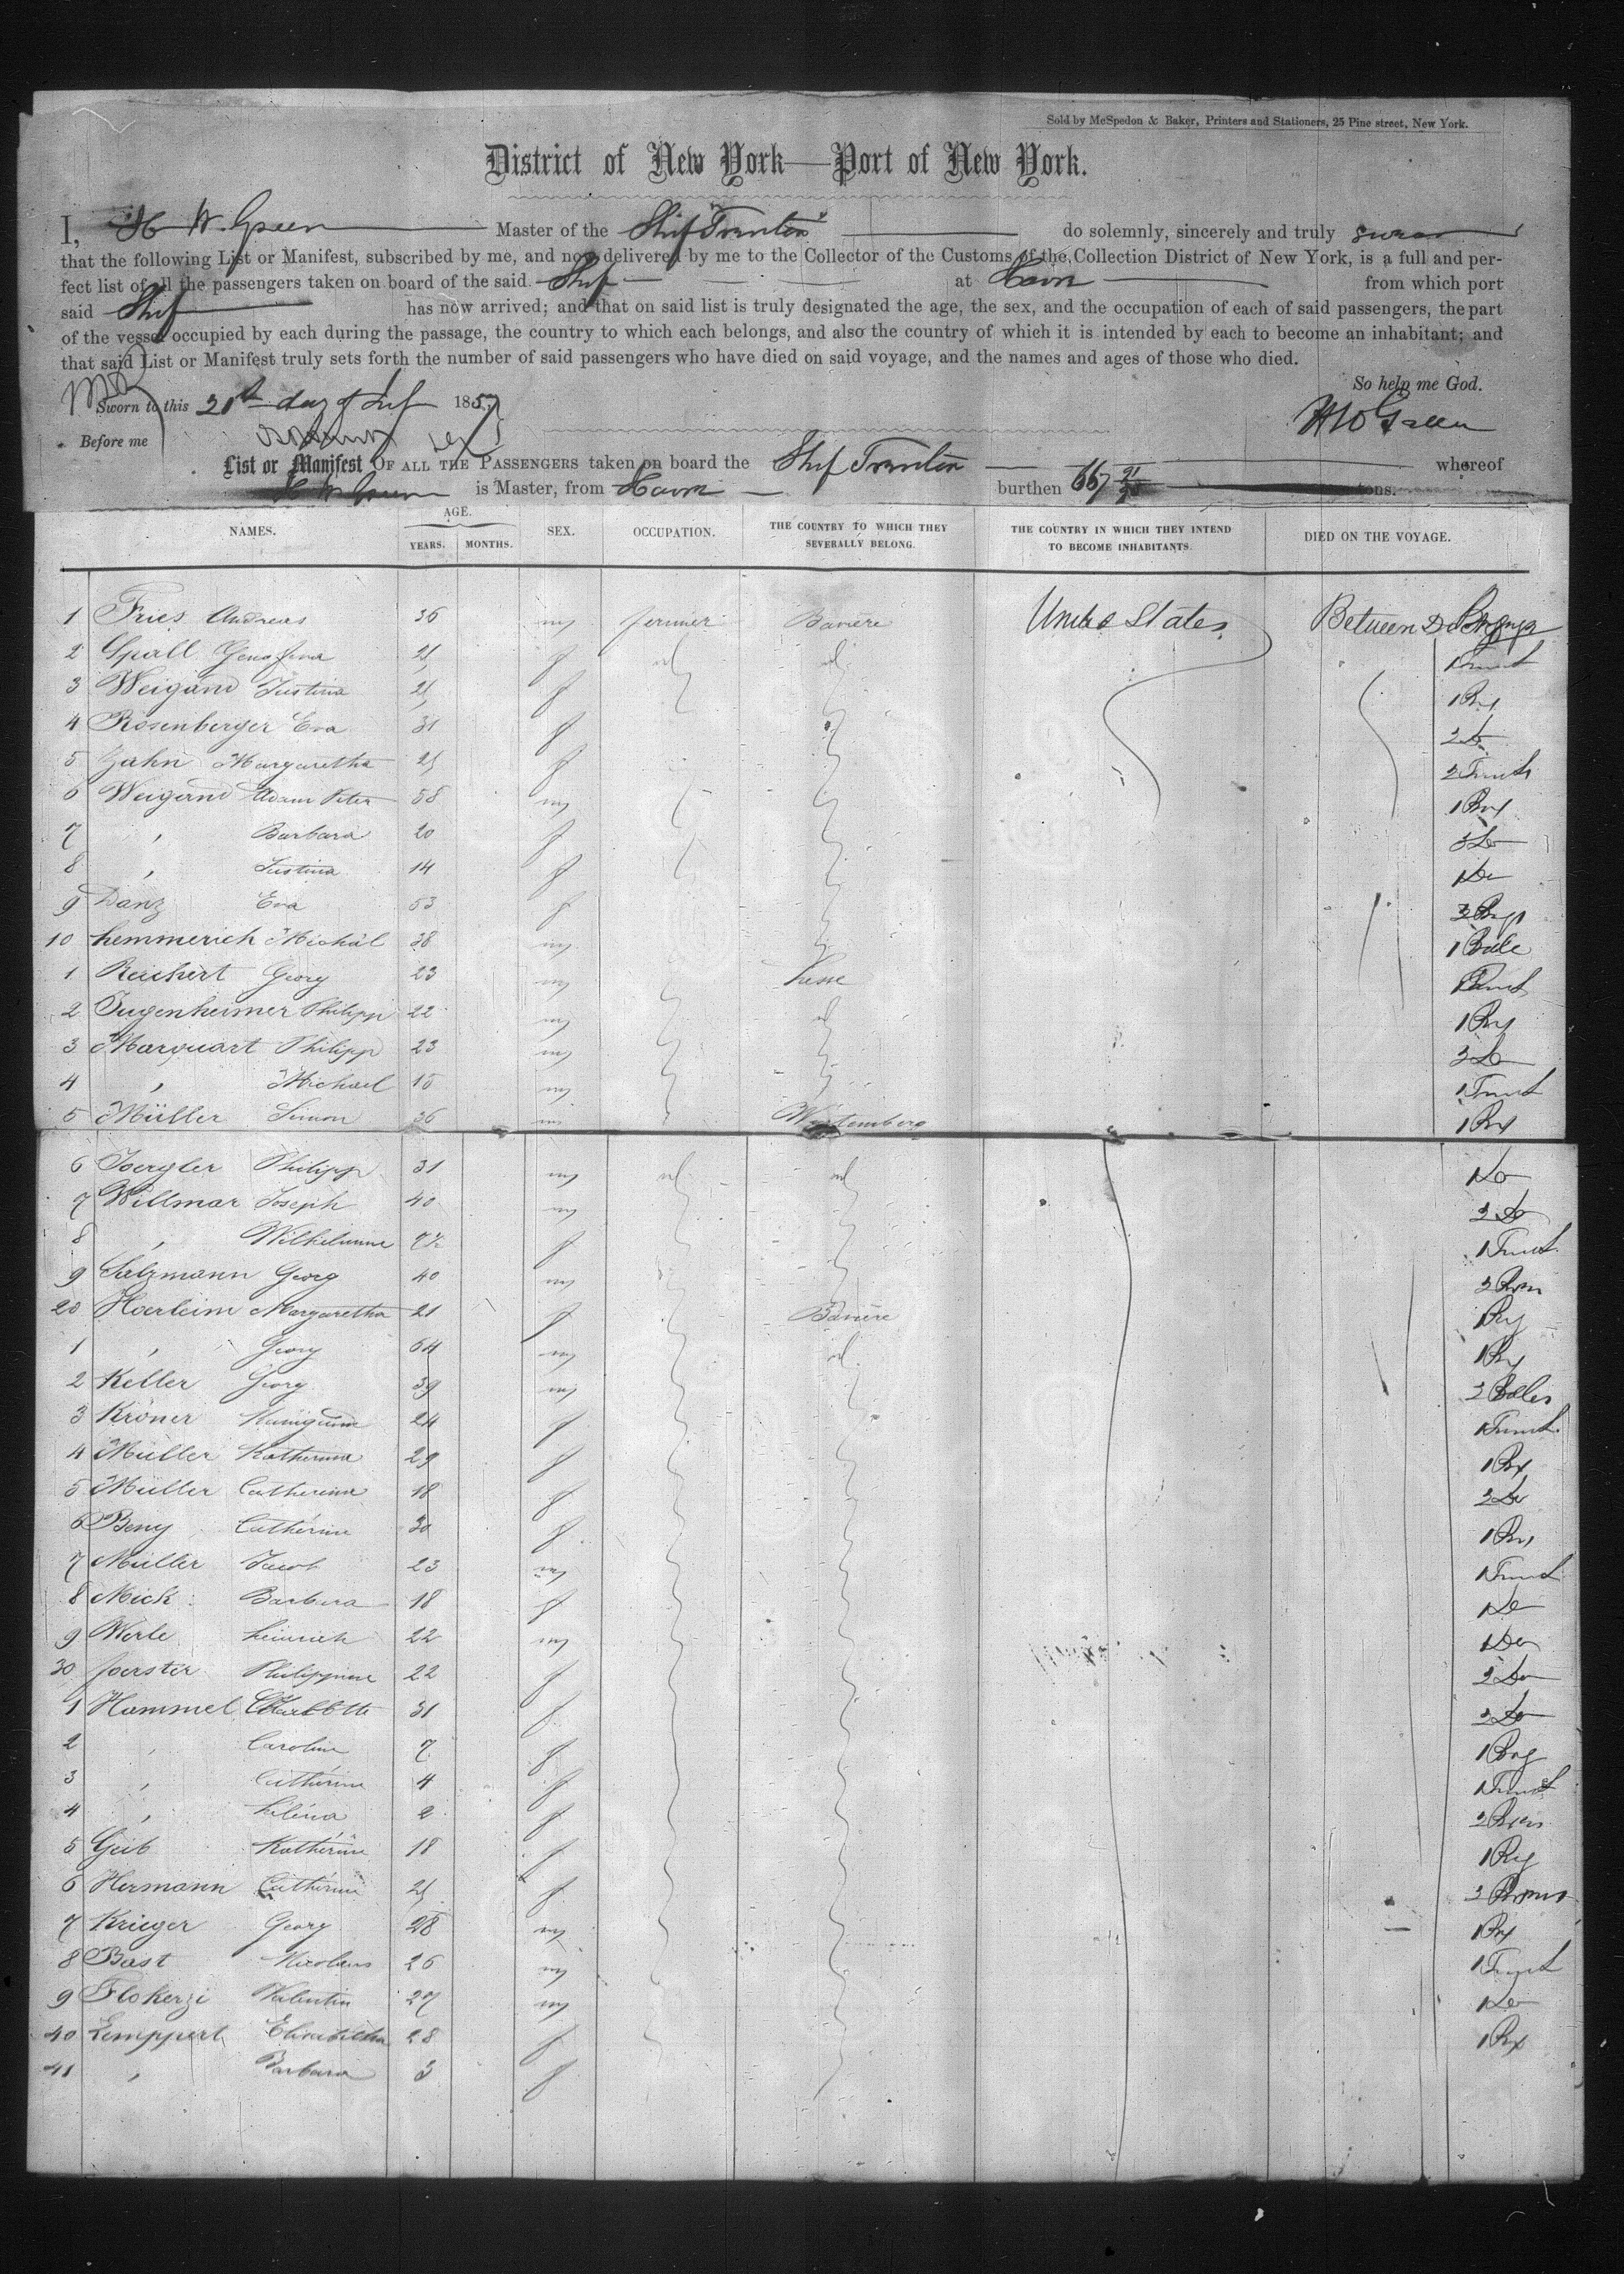 Sold by McSpedon & Baker, Printers and Stationers, 25 Pine street, New York.
District of New York—Port of New York.
I, H W. Green Master of the Ship Trenton do solemnly, sincerely and truly swear
that the following List or Manifest, subscribed by me, and now delivered by me to the Collector of the Customs of the Collection District of New York, is a full and per-
fect list of all the passengers taken on board of the said Ship at Havre from which port
said Ship has now arrived; and that on said list is truly designated the age, the sex, and the occupation of each of said passengers, the part
of the vessel occupied by each during the passage, the country to which each belongs, and also the country of which it is intended by each to become an inhabitant; and
that said List or Manifest truly sets forth the number of said passengers who have died on said voyage, and the names and ages of those who died.
So help me God.
Sworn to this day of 1857
H W Green
Before me
List or Manifest OF ALL THE PASSENGERS taken on board the Ship Trenton whereof
H W Green is Master, from Havre burthen 667 tons.
NAMES. AGE. YEARS. MONTHS. SEX. OCCUPATION. THE COUNTRY TO WHICH THEY SEVERALLY BELONG. THE COUNTRY IN WHICH THEY INTEND TO BECOME INHABITANTS. DIED ON THE VOYAGE.
1 Fries Andreas 36 m fermier Baviere United States Between D
2 Spall f id id 1 Trunk
3 Weigand Justina f 1 Bx
4 Rosenberger Eva 31 f 2 Do
5 Zahn Margaretha f 2 Trunks
6 Weigand Adam Peter 58 m 1 Box
7 " Barbara 20 f 3 Do
8 " Justina 14 f 1 Do
9 Danz Eva 53 f
10 hemmerich Michäl 38 m 1 Bale
1 Reichert Georg 23 m hesse 1 Trunk
2 Jugenheimer Philipp 22 m id 1 Bx
3 Marquart Philipp 23 m 3 Do
4 " Michael m 1 Trunk
5 Müller Simon 36 m Wurtemberg 1 Bx
6 Philipp 31 m id id 1 Do
7 Willmar Joseph 40 m 2 Do
8 " Wilhelmine f 1 Trunk
9 Salzmann Georg 40 m
20 Haerleim Margaretha 21 f Baviere
1 " Georg 64 m id
2 Keller Georg 39 m 2 Bales
3 Kröner 24 f 1 Trunk
4 Müller Katherina 29 f 1 Bx
5 Müller Catherine 18 f 2 Do
6 Beny Catherine 30 f
7 Müller Jacob 23 m 1 Trunk
8 Mick Barbara 18 f 1 Do
9 Werle heinrich 22 m 1 Do
30 foerster Philippine 22 f 2 Do
1 Hammel Charlotte 31 f 2 Do
2 " Caroline 7 f
3 " Catherine 4 f 1 Trunk
4 " heléna 2 f
5 Geib Katherine 18 f
6 Hermann Catherine f
7 Krieger Georg 28 m 1 Bx
8 Bast Nicolaus 26 m 1 Trunk
9 Flokerzi Valentin 27 m 1 Do
40 Lemppert Elisabetha 28 f 1 Bx
41 " Barbara 3 f